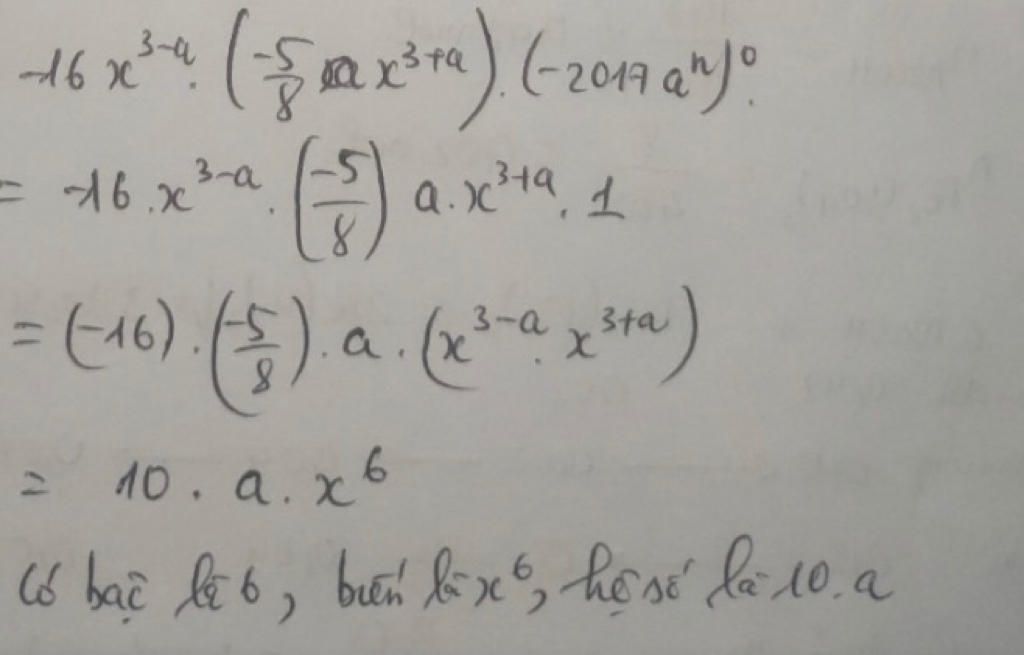 -16 x^{3-a} . (\frac{-5}{8} a x^{3+a}) . (-2017 a^n)^0 .
= -16 . x^{3-a} . (\frac{-5}{8}) a . x^{3+a} . 1
= (-16) . (\frac{-5}{8}) . a . (x^{3-a} . x^{3+a})
= 10 . a . x^6
Có bậc là 6, biến là x^6, hệ số là 10. a